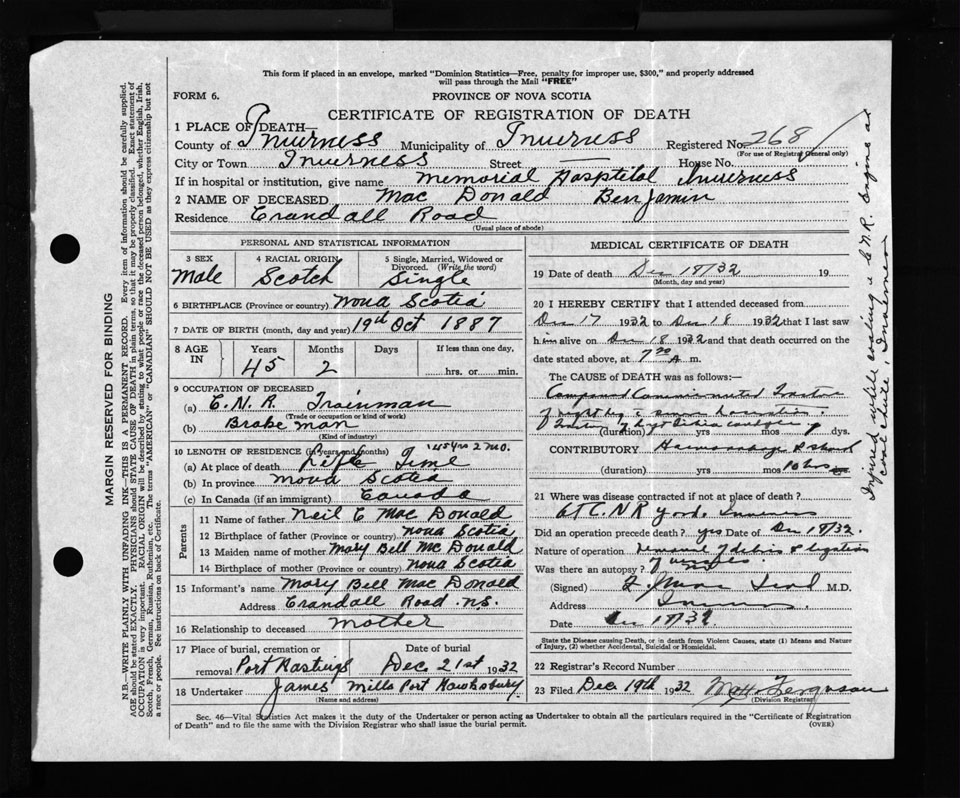 This form if placed in an envelope, marked "Dominion Statistics—Free, penalty for improper use, $300," and properly addressed
will pass through the Mail "FREE"
FORM 6.
PROVINCE OF NOVA SCOTIA
CERTIFICATE OF REGISTRATION OF DEATH
1 PLACE OF DEATH—
County of Inverness Municipality of Inverness Registered No. 268
(For use of Registrar General only)
City or Town Inverness Street — House No.
If in hospital or institution, give name Memorial Hospital Inverness
2 NAME OF DECEASED Mac Donald Benjamin
Residence Crandall Road
(Usual place of abode)
PERSONAL AND STATISTICAL INFORMATION
3 SEX 4 RACIAL ORIGIN 5 Single, Married, Widowed or Divorced. (Write the word)
Male Scotch Single
6 BIRTHPLACE (Province or country) Nova Scotia
7 DATE OF BIRTH (month, day and year) 19th Oct 1887
8 AGE IN Years Months Days If less than one day,
45 2 hrs. or min.
9 OCCUPATION OF DECEASED
(a) C.N.R. Trainman
(Trade or occupation or kind of work)
(b) Brakeman
(Kind of industry)
10 LENGTH OF RESIDENCE (in years and months) 45 yrs 2 mo.
(a) At place of death Life Time
(b) In province Nova Scotia
(c) In Canada (if an immigrant) Canada
Parents
11 Name of father Neil C Mac Donald
12 Birthplace of father (Province or country) Nova Scotia
13 Maiden name of mother Mary Bell McDonald
14 Birthplace of mother (Province or country) Nova Scotia
15 Informant's name Mary Bell MacDonald
Address Crandall Road N.S.
16 Relationship to deceased Mother
17 Place of burial, cremation or removal Port Hastings Date of burial Dec 21st 1932
18 Undertaker James Mills Port Hawksbury
(Name and address)
MEDICAL CERTIFICATE OF DEATH
19 Date of death Dec 18/32 19
(Month, day and year)
20 I HEREBY CERTIFY that I attended deceased from
Dec 17 1932 to Dec 18 1932 that I last saw
him alive on Dec 18 1932 and that death occurred on the
date stated above, at 7 30 A. m.
The CAUSE of DEATH was as follows:—
Compound Comminuted Fracture
of right leg
(duration) yrs mos dys.
CONTRIBUTORY Haemorrhage & shock
(duration) yrs mos 10 hrs
21 Where was disease contracted if not at place of death?
At C.N.R yard. Inverness
Did an operation precede death? yes Date of Dec 18/32
Nature of operation removal of debris & ligation
of vessels
Was there an autopsy?
(Signed) M.D.
Address Inverness
Date Dec 18/32
State the Disease causing Death, or in death from Violent Causes, state (1) Means and Nature
of Injury, (2) whether Accidental, Suicidal or Homicidal.
22 Registrar's Record Number
23 Filed Dec 19th 1932 Ferguson
(Division Registrar)
Sec. 46—Vital Statistics Act makes it the duty of the Undertaker or person acting as Undertaker to obtain all the particulars required in the "Certificate of Registration
of Death" and to file the same with the Division Registrar who shall issue the burial permit.
(OVER)
MARGIN RESERVED FOR BINDING
N.B.—WRITE PLAINLY WITH UNFADING INK—THIS IS A PERMANENT RECORD. Every item of information should be carefully supplied.
AGE should be stated EXACTLY. PHYSICIANS should STATE CAUSE OF DEATH in plain terms, so that it may be properly classified. Exact statement of
OCCUPATION is very important. RACIAL ORIGIN will be described by stating to what people or race the deceased person belonged, whether English, Irish,
Scotch, French, German, Russian, Ruthenian, etc. The terms "AMERICAN" or "CANADIAN" SHOULD NOT BE USED as they express citizenship but not
a race or people. See instructions on back of Certificate.
Injured while coaling a C.N.R. engine at
coal chute, Inverness